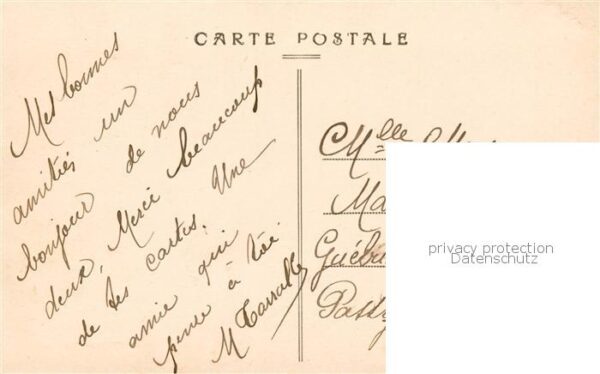 CARTE POSTALE
Mes bonnes
amitiés un
bonjour de nous
deux, Merci beaucoup
de tes cartes. Une
amie qui
pense à toi
M
Mlle
Ma
Guébri
Passy
privacy protection
Datenschutz